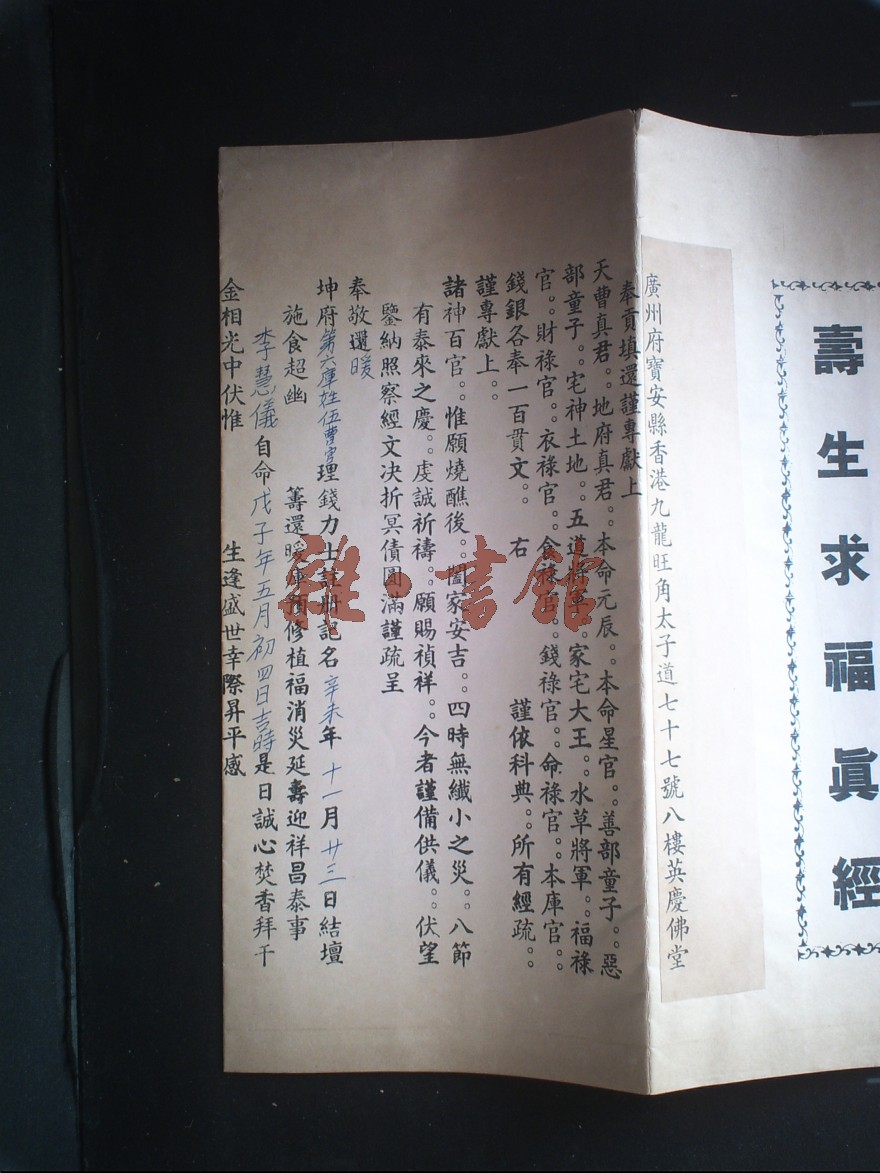 壽生求福眞經
廣州府寶安縣香港九龍旺角太子道七十七號八樓英慶佛堂
奉貢填還謹專獻上
天曹真君。。地府真君。。本命元辰。。本命星官。。善部童子。。惡
部童子。。宅神土地。。五道將軍。。家宅大王。。水草將軍。。福祿
官。。財祿官。。衣祿官。。食祿官。。錢祿官。。命祿官。。本庫官。。
錢銀各奉一百貫文。。 右 謹依科典。。所有經疏。。
謹專獻上。。
諸神百官。。惟願燒醮後。。闔家安吉。。四時無纖小之災。。八節
有泰來之慶。。虔誠祈禱。。願賜禎祥。。今者謹備供儀。。伏望
鑒納照察經文決折冥債圓滿謹疏呈
奉敬還暖
坤府第六庫姓伍曹官理錢力士註冊記名辛未年十一月廿三日結壇
施食超幽 籌還暖庫預修植福消災延壽迎祥昌泰事
李慧儀自命戊子年五月初四日吉時是日誠心焚香拜干
金相光中伏惟 生逢盛世幸際昇平感
雜·書館